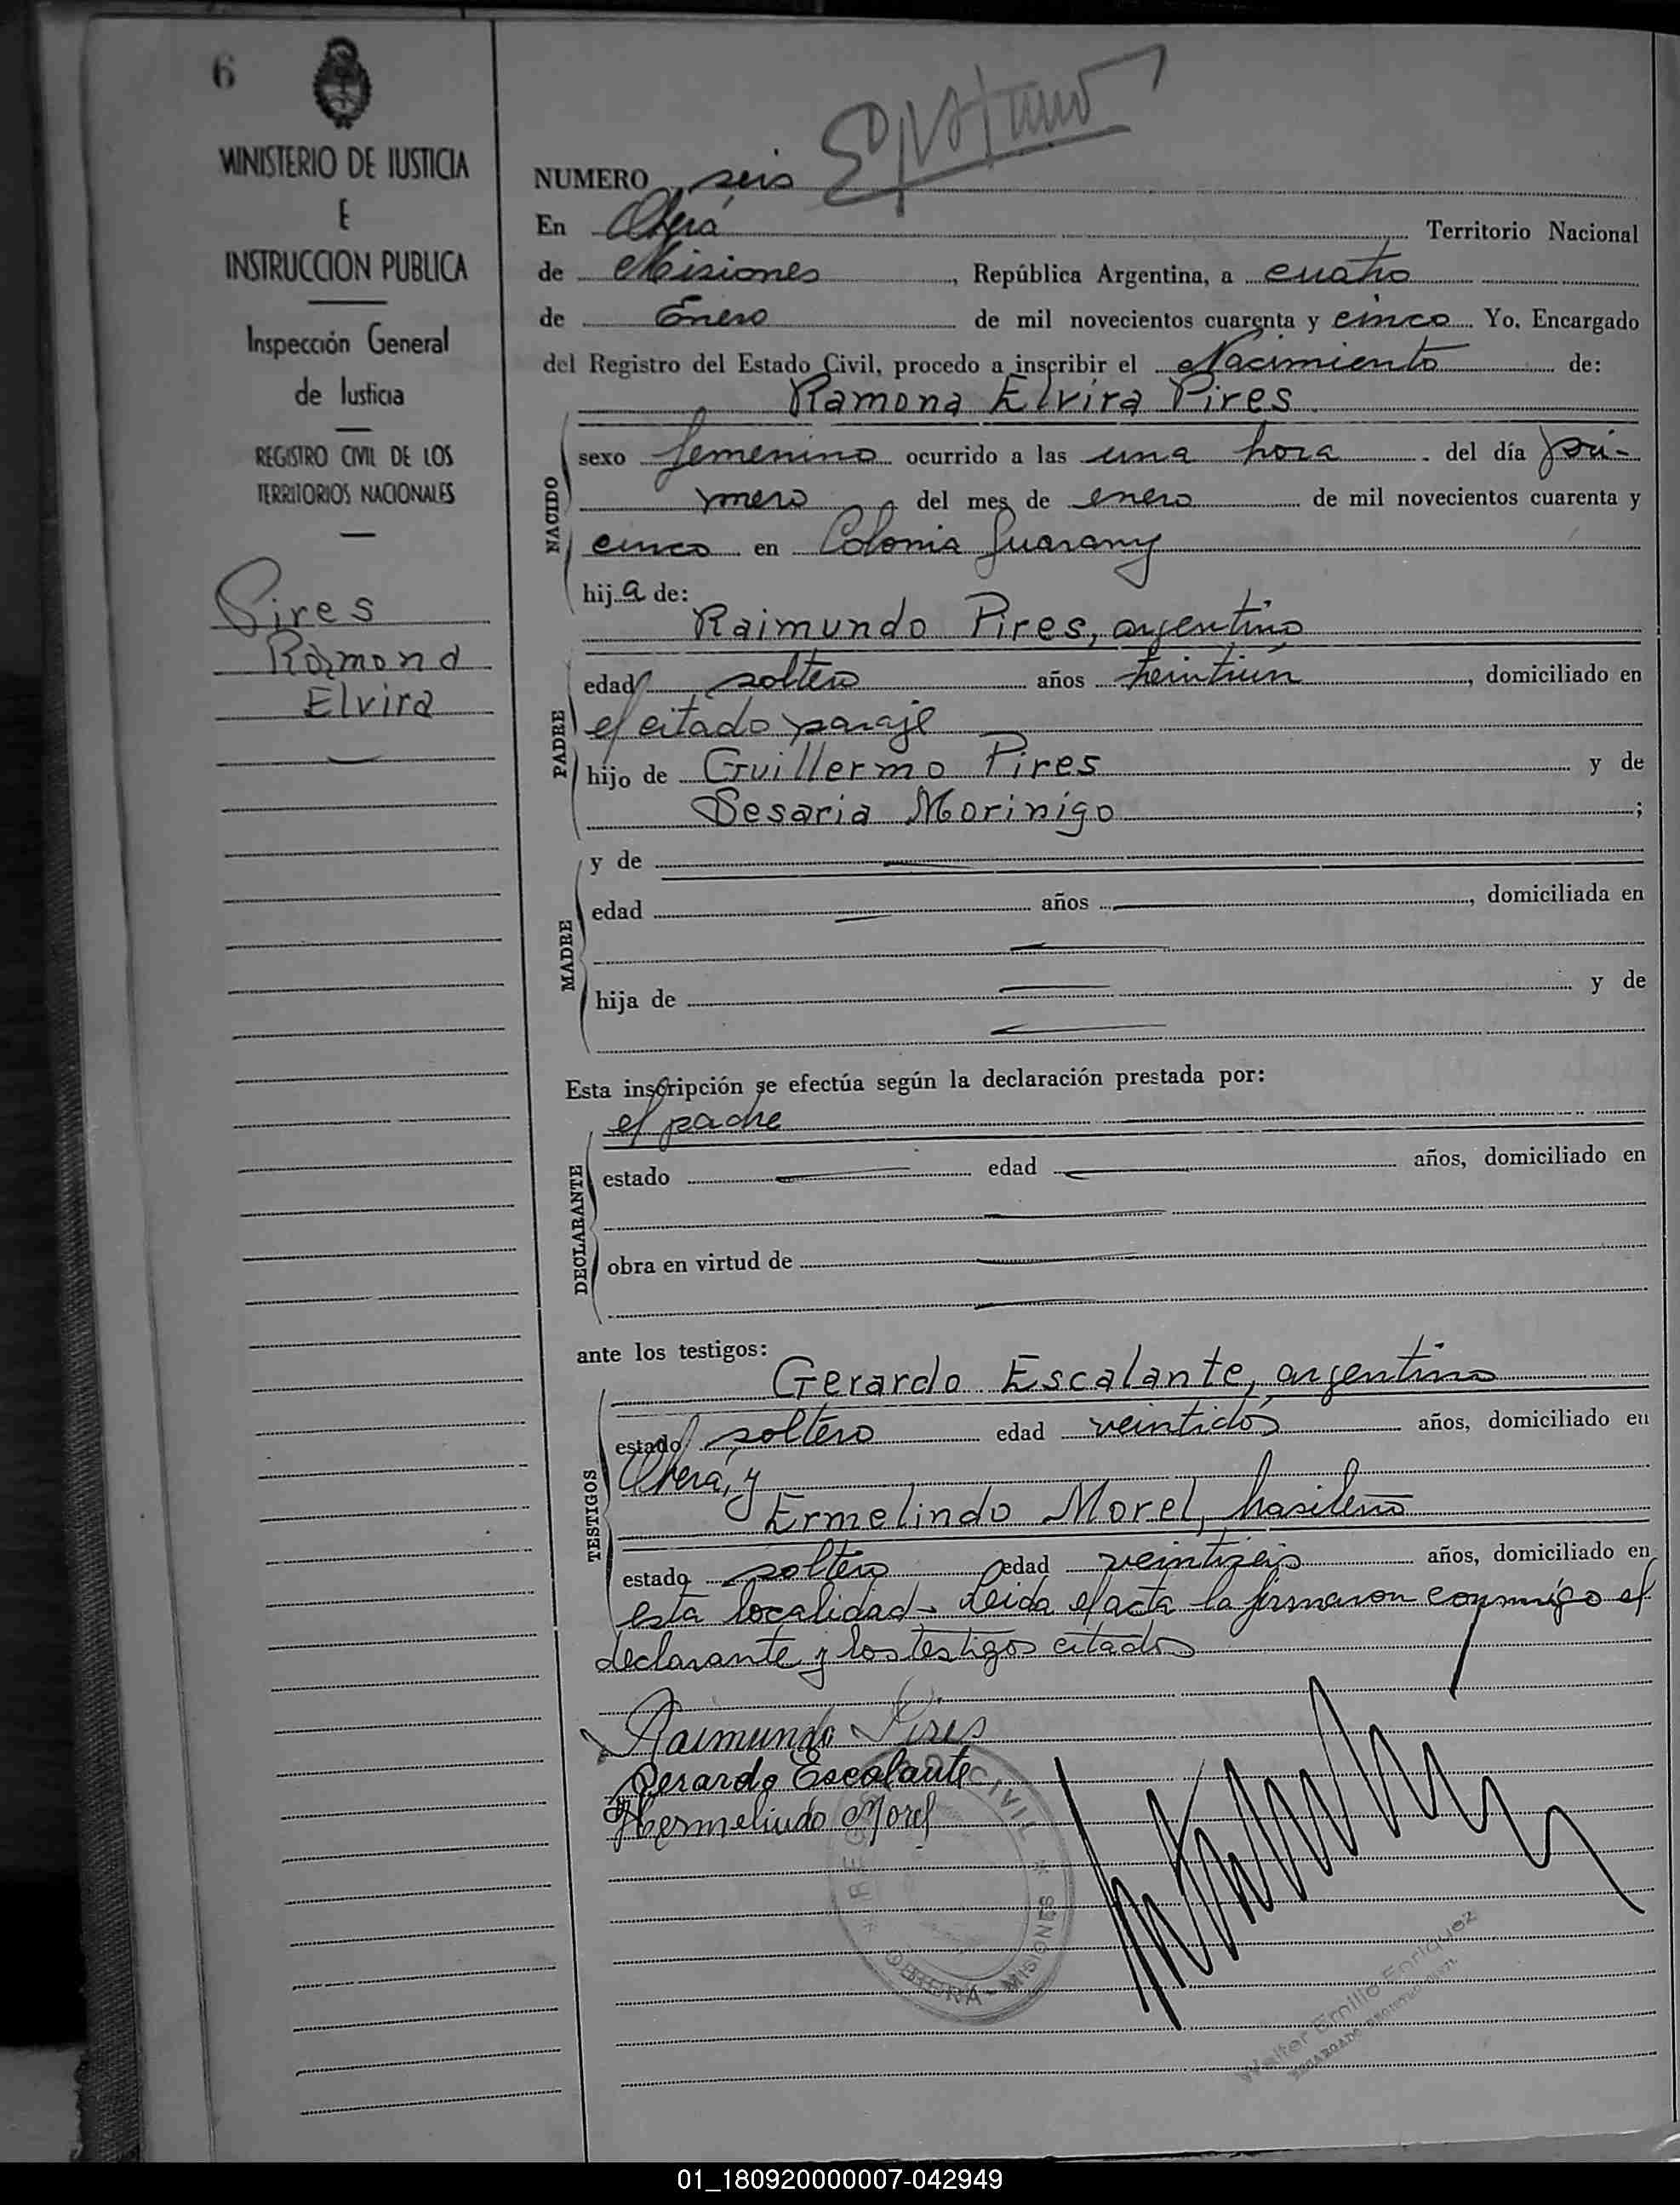 6
MINISTERIO DE JUSTICIA
E
INSTRUCCION PUBLICA
Inspección General
de Justicia
REGISTRO CIVIL DE LOS
TERRITORIOS NACIONALES
Pires
Ramona
Elvira
NUMERO seis
En Oberá Territorio Nacional
de Misiones, República Argentina, a cuatro
de Enero de mil novecientos cuarenta y cinco Yo, Encargado
del Registro del Estado Civil, procedo a inscribir el Nacimiento de:
Ramona Elvira Pires
NACIDO
sexo femenino ocurrido a las una hora del día pri-
mero del mes de enero de mil novecientos cuarenta y
cinco en Colonia Guarany
hija de:
Raimundo Pires, argentino
PADRE
edad soltero años treintiún, domiciliado en
el citado paraje
hijo de Guillermo Pires y de
Sesaria Morinigo;
MADRE
y de
edad años, domiciliada en
hija de y de
Esta inscripción se efectúa según la declaración prestada por:
el padre
DECLARANTE
estado edad años, domiciliado en
obra en virtud de
ante los testigos:
Gerardo Escalante, argentino
TESTIGOS
estado soltero edad veintidós años, domiciliado en
Oberá, y
Ermelindo Morel, brasileño
estado soltero edad veintiseis años, domiciliado en
esta localidad. Leida el acta la firmaron conmigo el
declarante y los testigos citados
Raimundo Pires
Gerardo Escalante
Hermelindo Morel
REG CIVIL
MISIONES
Walter Emilio Enriquez
ENCARGADO REGISTRO CIVIL
01_180920000007-042949